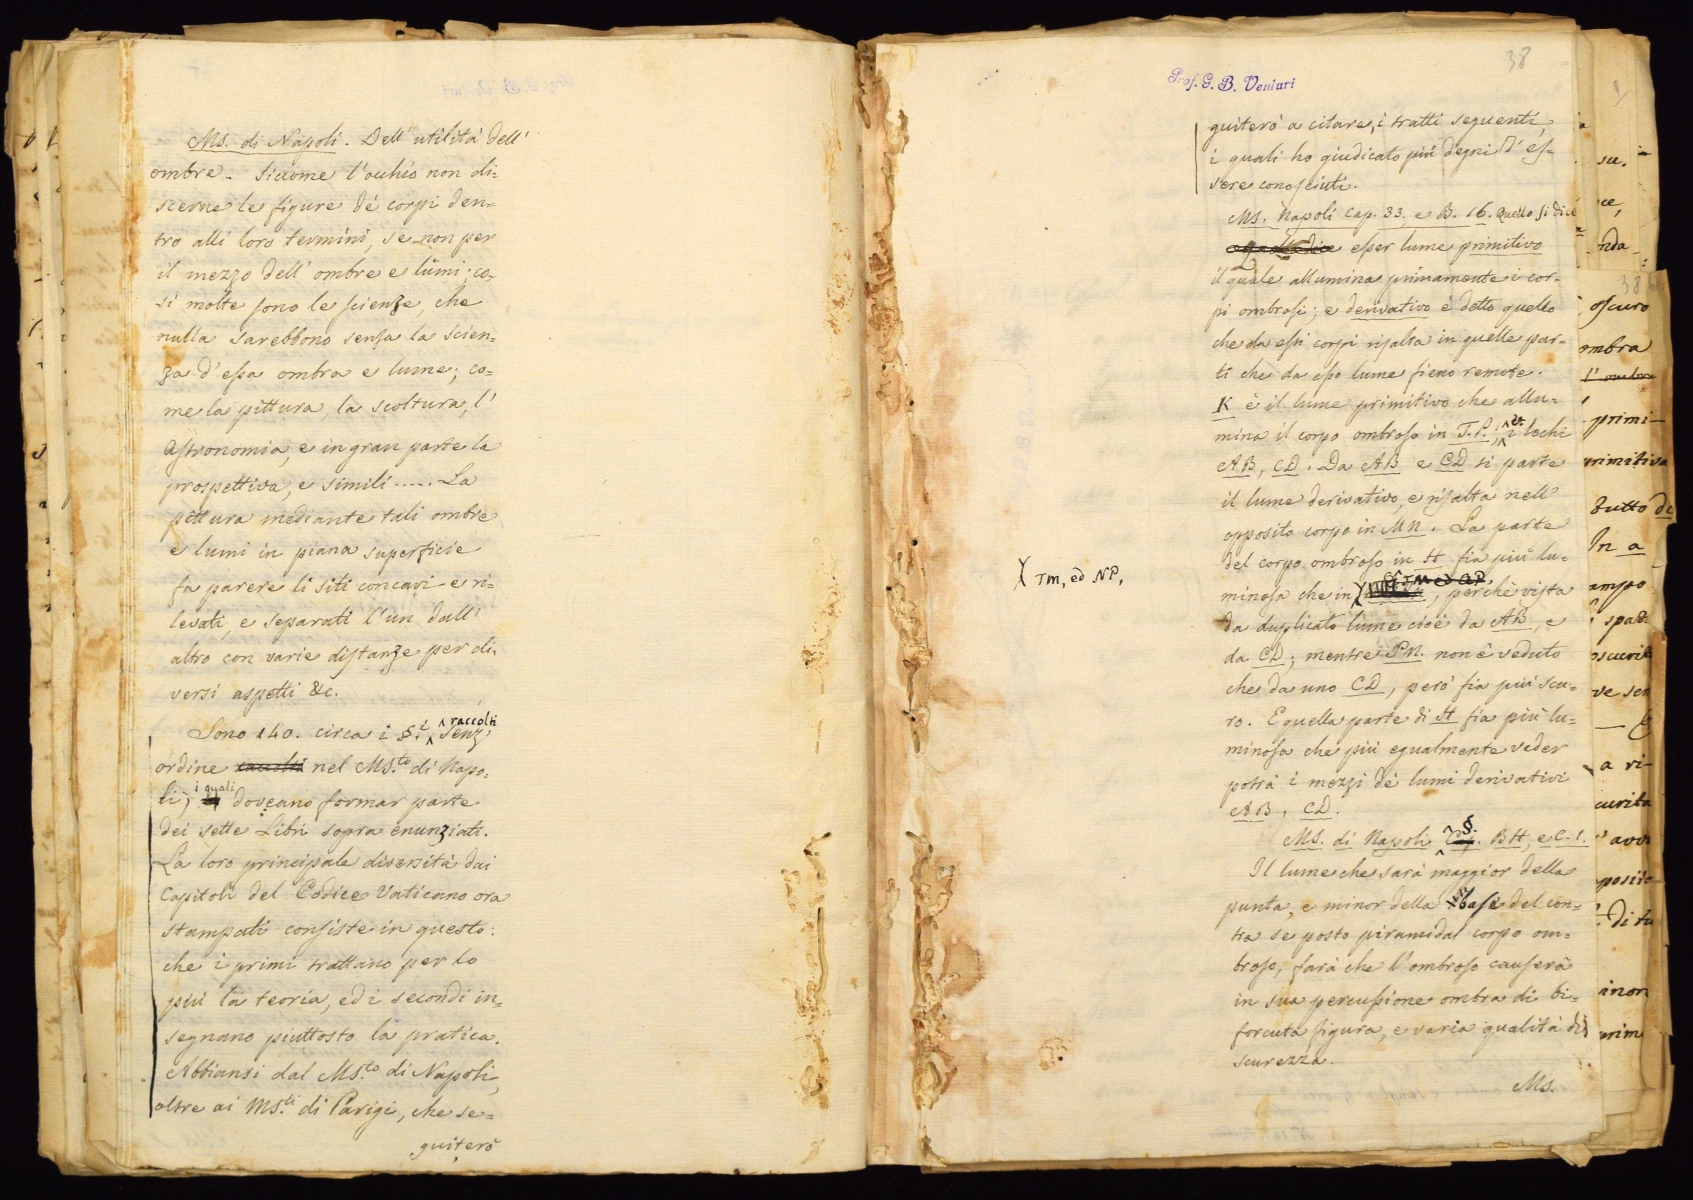 Ms. di Napoli. Dell' utilità dell'
ombre. Siccome l'occhio non di=
scerne le figure de' corpi den=
tro alli loro termini, se non per
il mezzo dell' ombre e lumi; co=
si molte sono le scienze, che
nulla sarebbono senza la scien=
za d'essa ombra e lume; co=
me la pittura, la scoltura, l'
Astronomia, e in gran parte la
prospettiva, e simili ..... La
pittura mediante tali ombre
e lumi in piana superficie
fa parere li siti concavi e ri=
levati, e separati l'un dall'
altro con varie distanze per di=
versi aspetti &c.
Sono 140. circa i §.i raccolti senz'
ordine raccolti nel Ms.to di Napo=
li, i quali doveano formar parte
dei sette Libri sopra enunziati.
La loro principale diversità dai
Capitoli del Codice Vaticano ora
stampati consiste in questo:
che i primi trattano per lo
più la teoria, ed i secondi in=
segnano piuttosto la pratica.
Abbiansi dal Ms.to di Napoli,
oltre ai Ms.ti di Parigi, che se=
guiterò
38
Prof. G. B. Venturi
guiterò a citare, i tratti seguenti,
i quali ho giudicato più degni d'es=
sere conosciuti.
Ms. Napoli Cap. 33. e B. 16. Quello si dice
esser lume primitivo
il quale allumina primamente i cor=
pi ombrosi; e derivativo è detto quello
che da essi corpi risalta in quelle par=
ti che da esso lume fieno remote.
K è il lume primitivo che allu=
mina il corpo ombroso in T.P.; et i lochi
AB, CD. Da AB e CD si parte
il lume derivativo, e risalta nell'
opposito corpo in MN. La parte
del corpo ombroso in H fia più lu=
X TM, ed NP,
minosa che in X, perchè vista
da duplicato lume cioè da AB, e
da CD; mentre PN. non è veduto
che da uno CD, però fia più scu=
ro. E quella parte di H fia più lu=
minosa che più egualmente veder
potrà i mezzi de' lumi derivativi
AB, CD.
Ms. di Napoli §. BH, e C. 1.
Il lume che sarà maggior della
punta, e minor della basi del con=
tra se posto piramidal corpo om=
broso, farà che l'ombroso causerà
in sua percussione ombra di bi=
forcuta figura, e varia qualità di
scurezza.
Ms.
38
oscuro
ombra
l'ombra
primi=
primitiva
tutto de
In a
campo
oscurità
a ri=